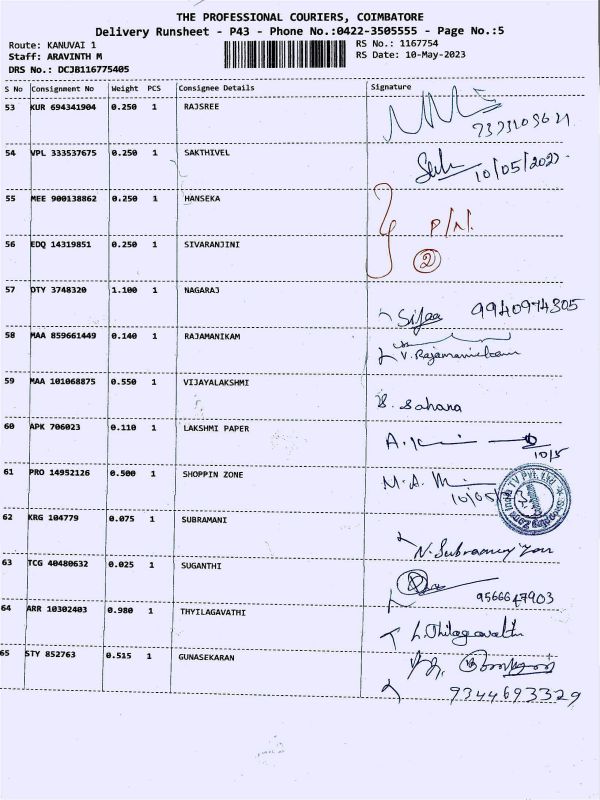 THE PROFESSIONAL COURIERS, COIMBATORE
Delivery Runsheet - P43 - Phone No.:0422-3505555 - Page No.:5
Route: KANUVAI 1 RS No.: 1167754
Staff: ARAVINTH M RS Date: 10-May-2023
DRS No.: DCJB116775405
S No Consignment No Weight PCS Consignee Details Signature
53 KUR 694341904 0.250 1 RAJSREE
54 VPL 333537675 0.250 1 SAKTHIVEL
10/05/2023
55 MEE 900138862 0.250 1 HANSEKA
P/N.
56 EDQ 14319851 0.250 1 SIVARANJINI
2
57 DTY 3748320 1.100 1 NAGARAJ
9940974305
58 MAA 859661449 0.140 1 RAJAMANIKAM
V. Rajamanickam
59 MAA 101068875 0.550 1 VIJAYALAKSHMI
B. Sahana
60 APK 706023 0.110 1 LAKSHMI PAPER
10/5
61 PRO 14952126 0.500 1 SHOPPIN ZONE
M.A.
10/05/
Shopping Zone India TV Pvt. Ltd.
62 KRG 104779 0.075 1 SUBRAMANI
63 TCG 40480632 0.025 1 SUGANTHI
9566647903
64 ARR 10302403 0.980 1 THYILAGAVATHI
L. Thilagavathi
65 STY 852763 0.515 1 GUNASEKARAN
9344693329